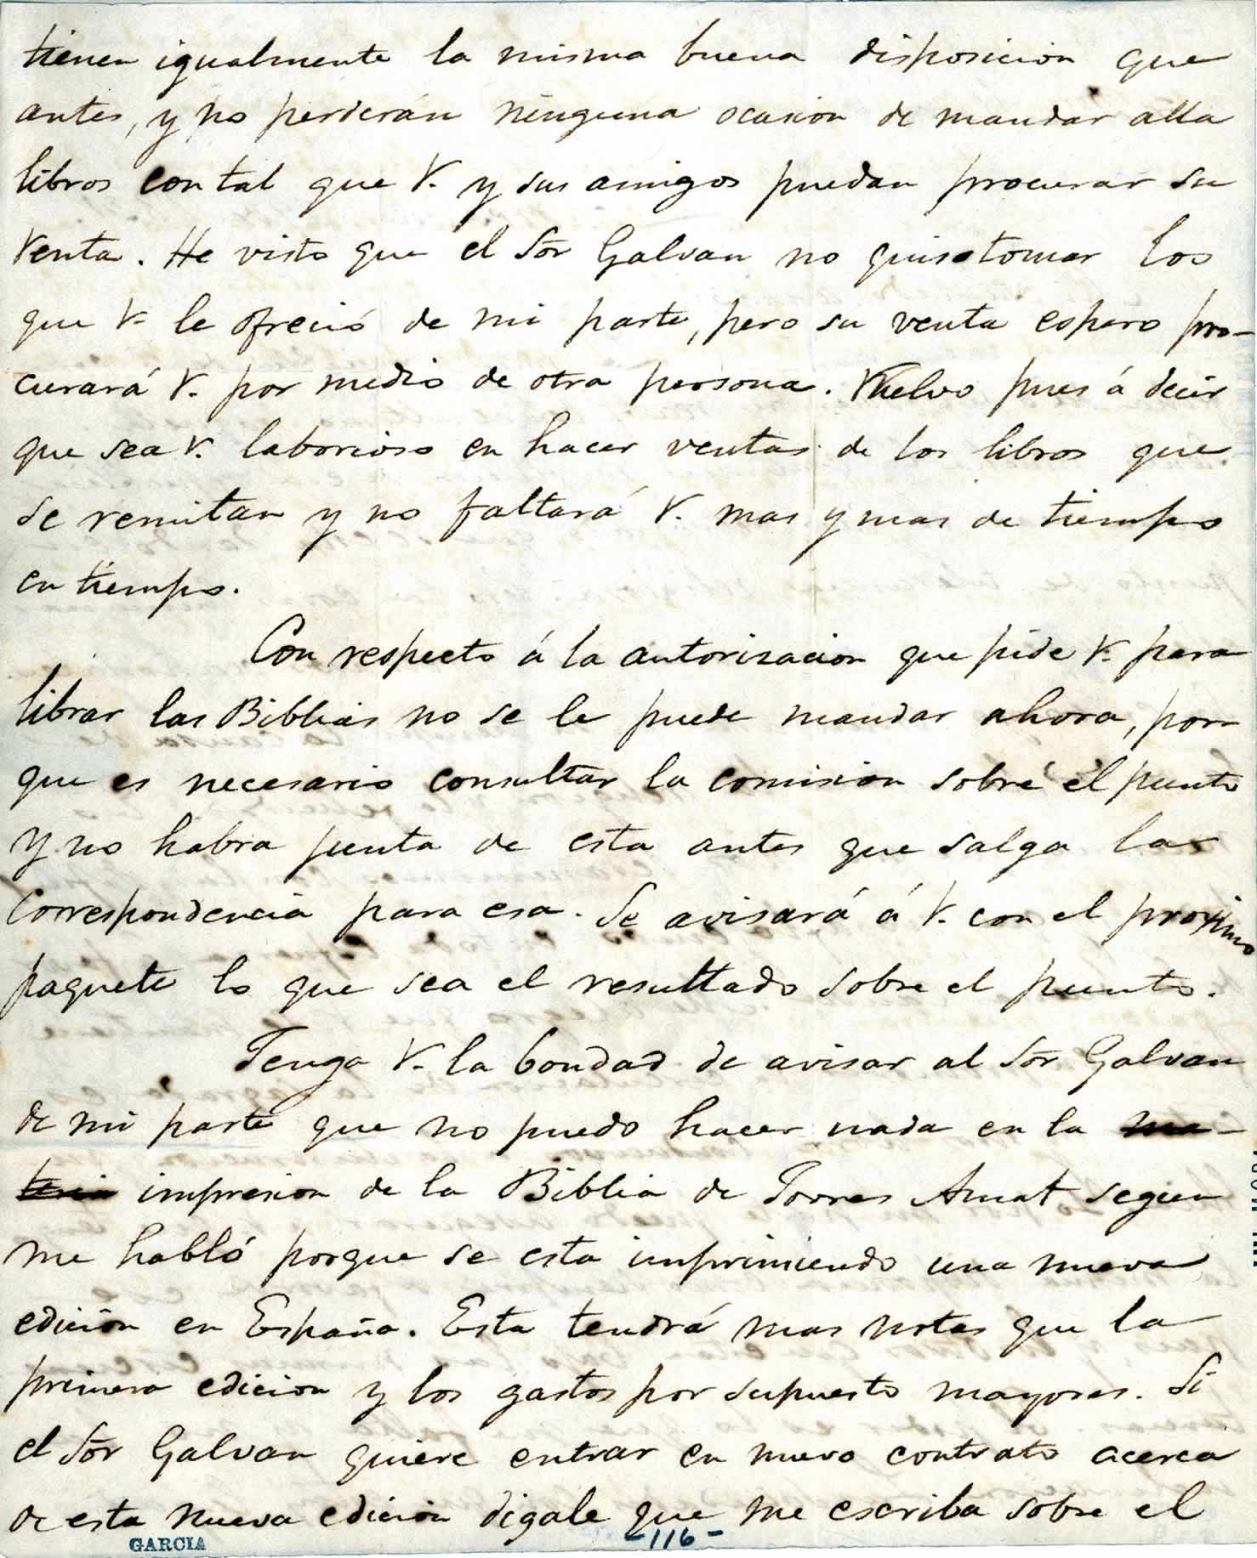 tienen igualmente la misma buena disposicion que
antes, y no perderán ninguna ocasion de mandar alla
libros con tal que V. y sus amigos puedan procurar su
venta. He visto que el Sōr Galvan no quiso tomar los
que V. le ofreció de mi parte, pero su venta espero pro-
curará V. por medio de otra persona. Vuelvo pues á decir
que sea V. laborioso en hacer ventas de los libros que
se remitan y no faltará V. mas y mas de tiempo
en tiempo.
Con respecto á la autorisacion que pide V. para
librar las Biblias no se le puede mandar ahora, por-
que es necesario consultar la comision sobre el punto
y no habra junta de esta antes que salga la
correspondencia para esa. Se avisará á V. con el proximo
paquete lo que sea el resultado sobre el punto.
Tenga V. la bondad de avisar al Sōr Galvan
de mi parte que no puedo hacer nada en la ma-
teria impresion de la Biblia de Torres Amat segun
me habló porque se esta imprimiendo una nueva
edicion en España. Esta tendrá mas notas que la
primera edicion y los gastos por supuesto mayores. Si
el Sōr Galvan quiere entrar en nuevo contrato acerca
de esta nueva edicion digale que me escriba sobre el
GARCIA
-116-